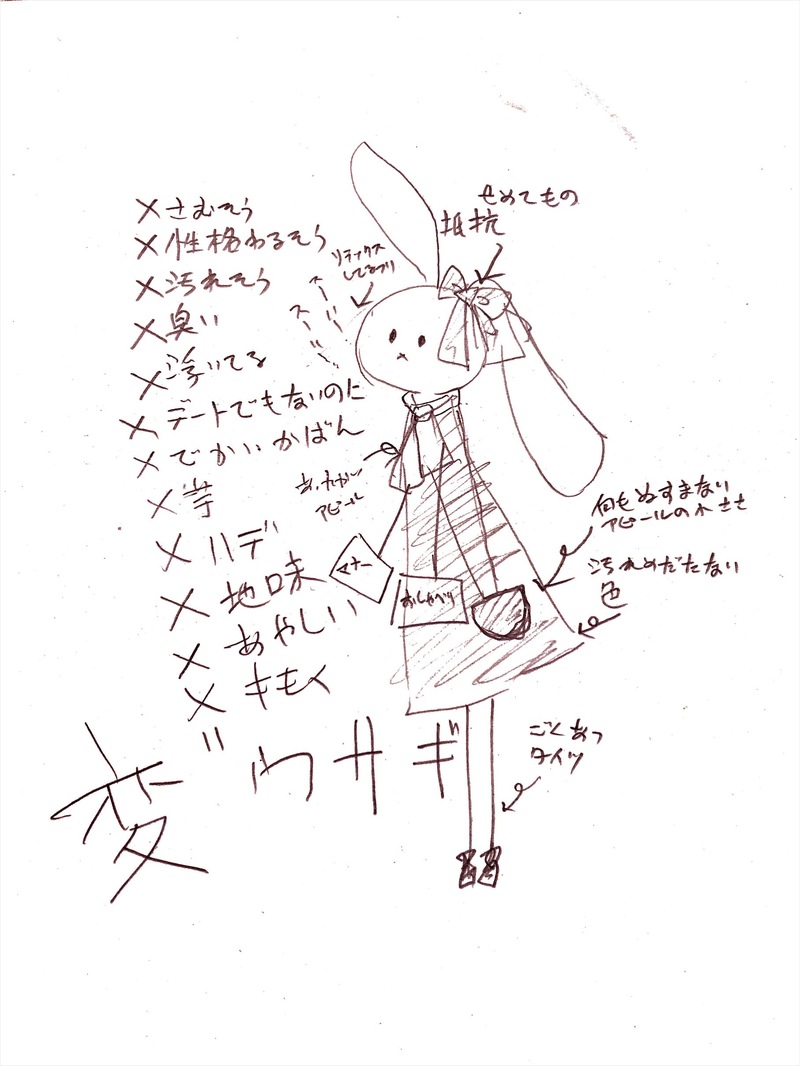 ×さむそう
×性格わるそう
×汚れそう
×臭い
×浮いてる
×デートでもないのに
×でかいかばん
×芋
×ハデ
×地味
×あやしい
×きもく
せめてもの
抵抗
リラックス
してるフリ
アピール
マナー
おしゃべり
何もぬすまない
アピールの小ささ
汚れめだたない
色
ごくあつ
タイツ
変
ウサギ